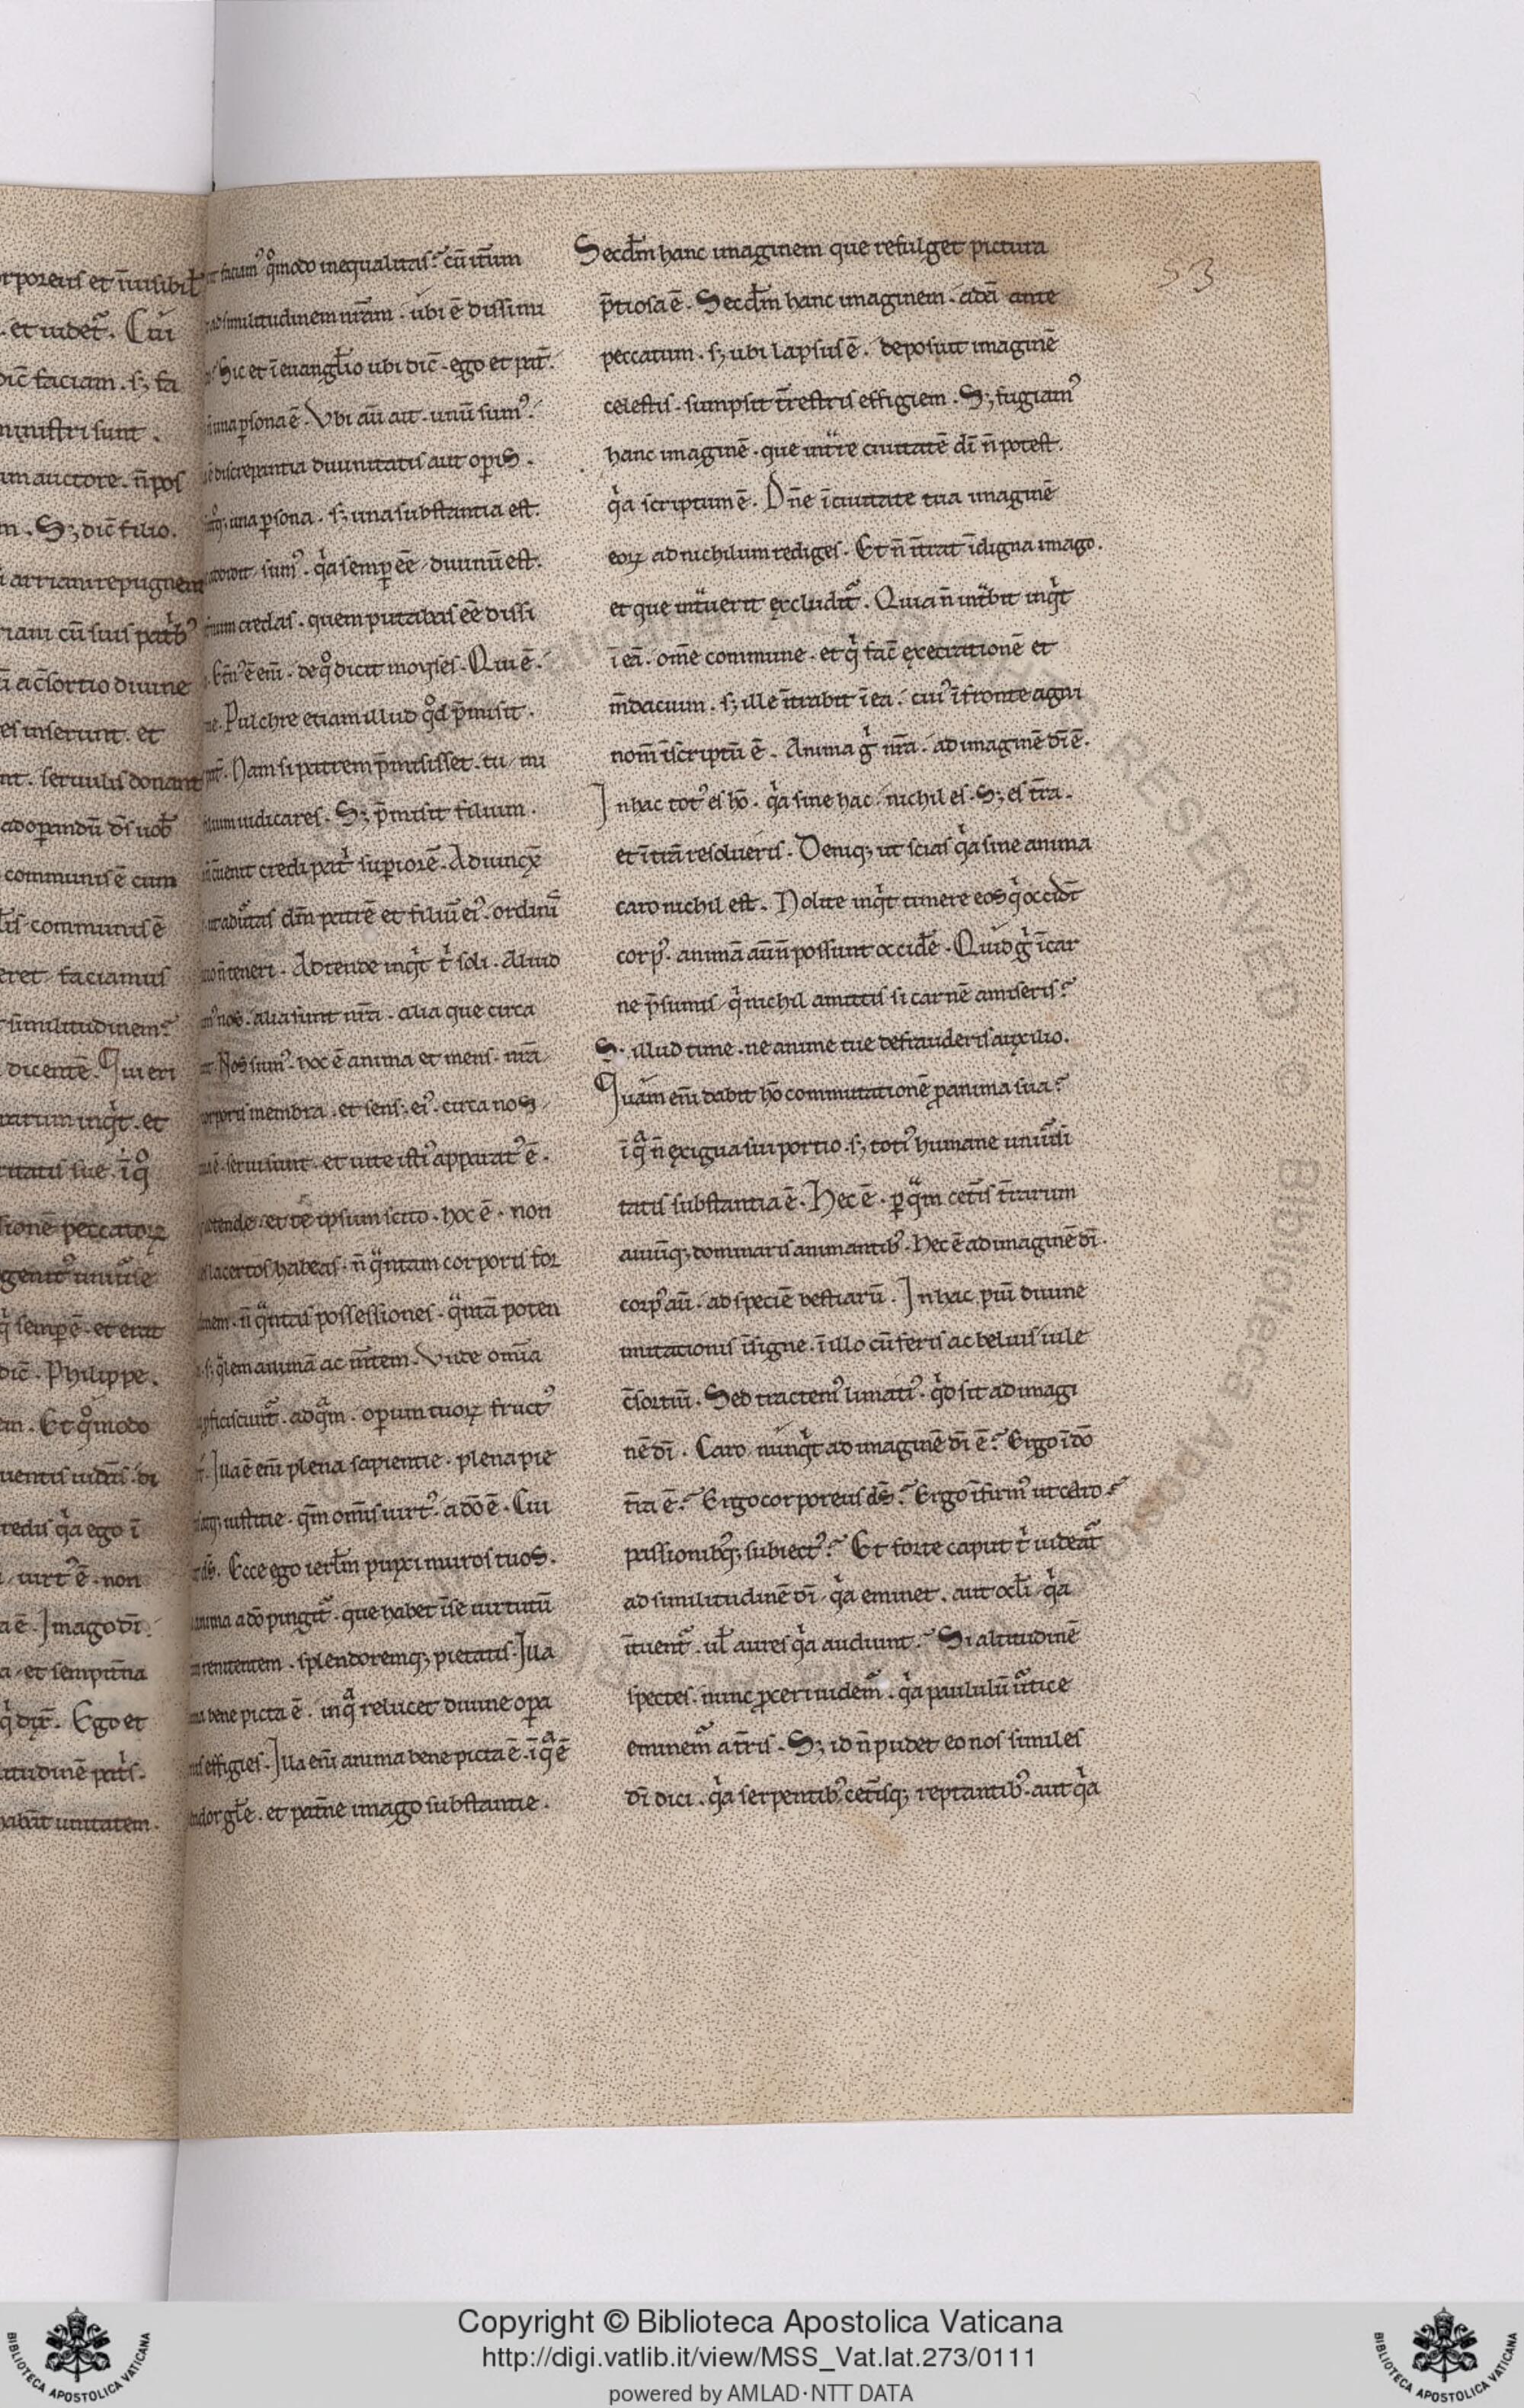 rporeus et īuisibil̄
. et uidet᷑. Cui
dic̄ faciam. s; fa
ministri sunt.
um auctore. n̄ pos
m. S; dic̄ filio.
arriani repugnem
riani cū suis patb᷒
a c̄sortio diuine
es inserunt. et
nt. seruulis donant
ad opandū d̄s nob̄
communis ē cum
communis ē
eret. faciamus
similitudinem᷑
dicentē. Qui eri
ratum inqͥt. et
ritatis sue. ī qͦ
sionē peccatoꝝ
genit᷒ uniūse
qͥ semp ē. et erat
dic̄. Philippe.
em. Et qͦmodo
di
redis qͥa ego ī
uirt᷒ ē. non
a ē. Imago dī.
a. et sempit̄na
qͥ dix̄. Ego et
itudinē patͥs.
habn̄t unitatem.
qͦmodo inequalitas᷑ cū it̄um
ad similitudinem nr̄am. ubi ē dissimi
Sic et ī euangl̄io ubi dic̄. ego et pat̄.
una psona ē. Vbi aū ait. unū sum᷒.
discrepantia diuinitatis aut opis.
una psona. s; una substantia est.
sum᷒. qͥa semp eē. diuinū est.
credas. quem putabas eē dissi
ē eni. de qͦ dicit moyses. Qui ē.
Pulchre etiam illud qͦd p̄misit.
Nam si patrem p̄misisset. tu
iudicares. S; p̄misit filium.
credi patͥ supiorē. Aduincx̄
dm̄ patrē et filiū ei᷒. ordini
teneri. Adtende inqͥt tͥ soli. Aliud
nos. alia sunt nr̄a. alia que circa
Nos sum᷒. hoc ē anima et mens. nr̄a
corporis membra. et sens; ei᷒. circa nos
serui sunt. et uite isti᷒ apparat᷒ ē.
et te ipsum scito. hoc ē. non
lacertos habeas. n̄ qͣntam corporis for
n̄ qͣntas possessiones. qͣntā poten
s; qͣlem animā ac mt̄em. Vnde omīa
ad qͣm. opum tuoꝝ fruct᷒
Illa ē eni plena sapientie. plena pie
iustitie. qm̄ om̄is uirt᷒ a dō ē. Cui
Ecce ego ierl̄m pinxi muros tuos.
anima a dō pingit᷑. que habet ī se uirtutū
renitentem. splendoremq; pietatis. Illa
bene picta ē. in qͣ relucet diuine opa
effigies. Illa eni anima bene picta ē. ī qͣ ē
gl̄e. et pat̄ne imago substantie.
53
Secd̄m hanc imaginem que refulget pictura
p̄tiosa ē. Secd̄m hanc imaginem. adā ante
peccatum. s; ubi lapsus ē. deposuit imaginē
celestis. sumpsit t̄restris effigiem. S; fugiam᷒
hanc imaginē. que intͣre ciuitatē dī n̄ potest.
qͥa scriptum ē. Dn̄e ī ciuitate tua imaginē
eoꝝ ad nichilum rediges. Et n̄ īt̄rat īdigna imago.
et que intͣuerit excludit᷑. Quia n̄ intͣbit inqͥt
ī eā. om̄e commune. et qͥ fac̄ execratiōnē et
m̄dacium. s; ille īt̄rabit ī ea. cui᷒ ī fronte agni
nom̄ īscriptū ē. Anima gͥ nr̄a. ad imaginē dī ē.
In hac tot᷒ es hō. qͥa sine hac. nichil es. S; es t̄ra.
et ī t̄rā resolueris. Deniq; ut scias qͥa sine anima
caro nichil est. Nolite inqͥt timere eos qͥ occidt̄
corp᷒. animā aū n̄ possunt occidē. Quid gͥ ī car
ne p̄sumis. qͥ nichil amittis si carnē amiseris᷑
S. illud time. ne anime tue defrauderis auxilio.
Quam eni dabit hō commutationē p anima sua᷑
ī qͣ n̄ exigua sui portio. s; toti᷒ humane uniūsi
tatis substantia ē. Hec ē. p qͣm cet̄is t̄rarum
auiūq; dominaris animantib᷒. Hec ē ad imaginē dī.
corp᷒ aū. ad speciē bestiarū. In hac piū diuine
imitationis īsigne. ī illo cū feris ac beluis uile
c̄sortiū. Sed tractem᷒ limati᷒. qͥd sit ad imagi
nē dī. Caro nūnqͥt ad imaginē dī ē᷑ Ergo ī dō
t̄ra ē᷑ Ergo corporeus ds̄᷑ Ergo īfirm᷒ ut caro᷑
passionibq; subiect᷒᷑ Et forte caput tͥ uideat᷑
ad similitudinē dī. qͥa eminet. aut ocl̄i. qͥa
īt̄uent᷑. ul̄ aures qͥa audiunt᷑ Si altitudinē
spectes. nunc proceri uidem᷑. qͥa paululū ūtice
eminem᷑ a t̄ris. S; id n̄ pudet eo nos similes
dī dici. qͥa serpentib᷒ cet̄isq; reptantib᷒. aut qͥa
Copyright © Biblioteca Apostolica Vaticana
http://digi.vatlib.it/view/MSS_Vat.lat.273/0111
powered by AMLAD·NTT DATA
BIBLIOTECA APOSTOLICA VATICANA
BIBLIOTECA APOSTOLICA VATICANA